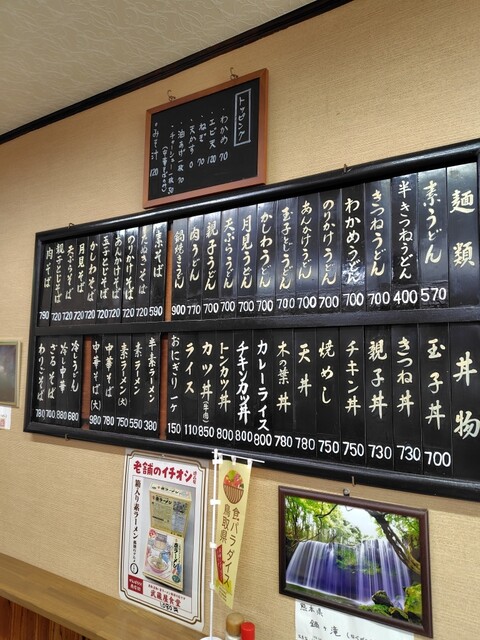 トッピング
・わかめ 70
・エビ天 120
・ねぎ 70
・天かす 0
・油あげ一枚 70
・チャーシュー一枚 30
(中華そばのみ)
・みそ汁 120
麺類
素うどん 570
半きつねうどん 400
きつねうどん 700
わかめうどん 700
のりかけうどん 700
あんかけうどん 700
玉子とじうどん 700
かしわうどん 700
月見うどん 700
天ぷらうどん 700
親子うどん 700
肉うどん 770
鍋焼きうどん 900
素そば 590
たぬきそば 720
のりかけそば 720
あんかけそば 720
玉子とじそば 720
かしわそば 720
月見そば 720
天ぷらそば 720
親子とじそば 720
肉そば 790
丼物
玉子丼 700
きつね丼 730
親子丼 730
チキン丼 750
焼めし 750
天丼 780
木の葉丼 780
カレーライス 800
チキンカツ丼 800
トンカツ丼 800
カツ丼(牛肉) 850
ライス 110
おにぎり一ケ 150
半素ラーメン 380
素ラーメン 550
素ラーメン(大) 750
中華そば 780
中華そば(大) 980
冷し中華 880
冷しうどん 680
ざるそば 700
わりごそば 780
老舗のイチオシ
箱入り素ラーメン
武蔵屋食堂
食パラダイス
鳥取県
熊本県
鍋ヶ滝